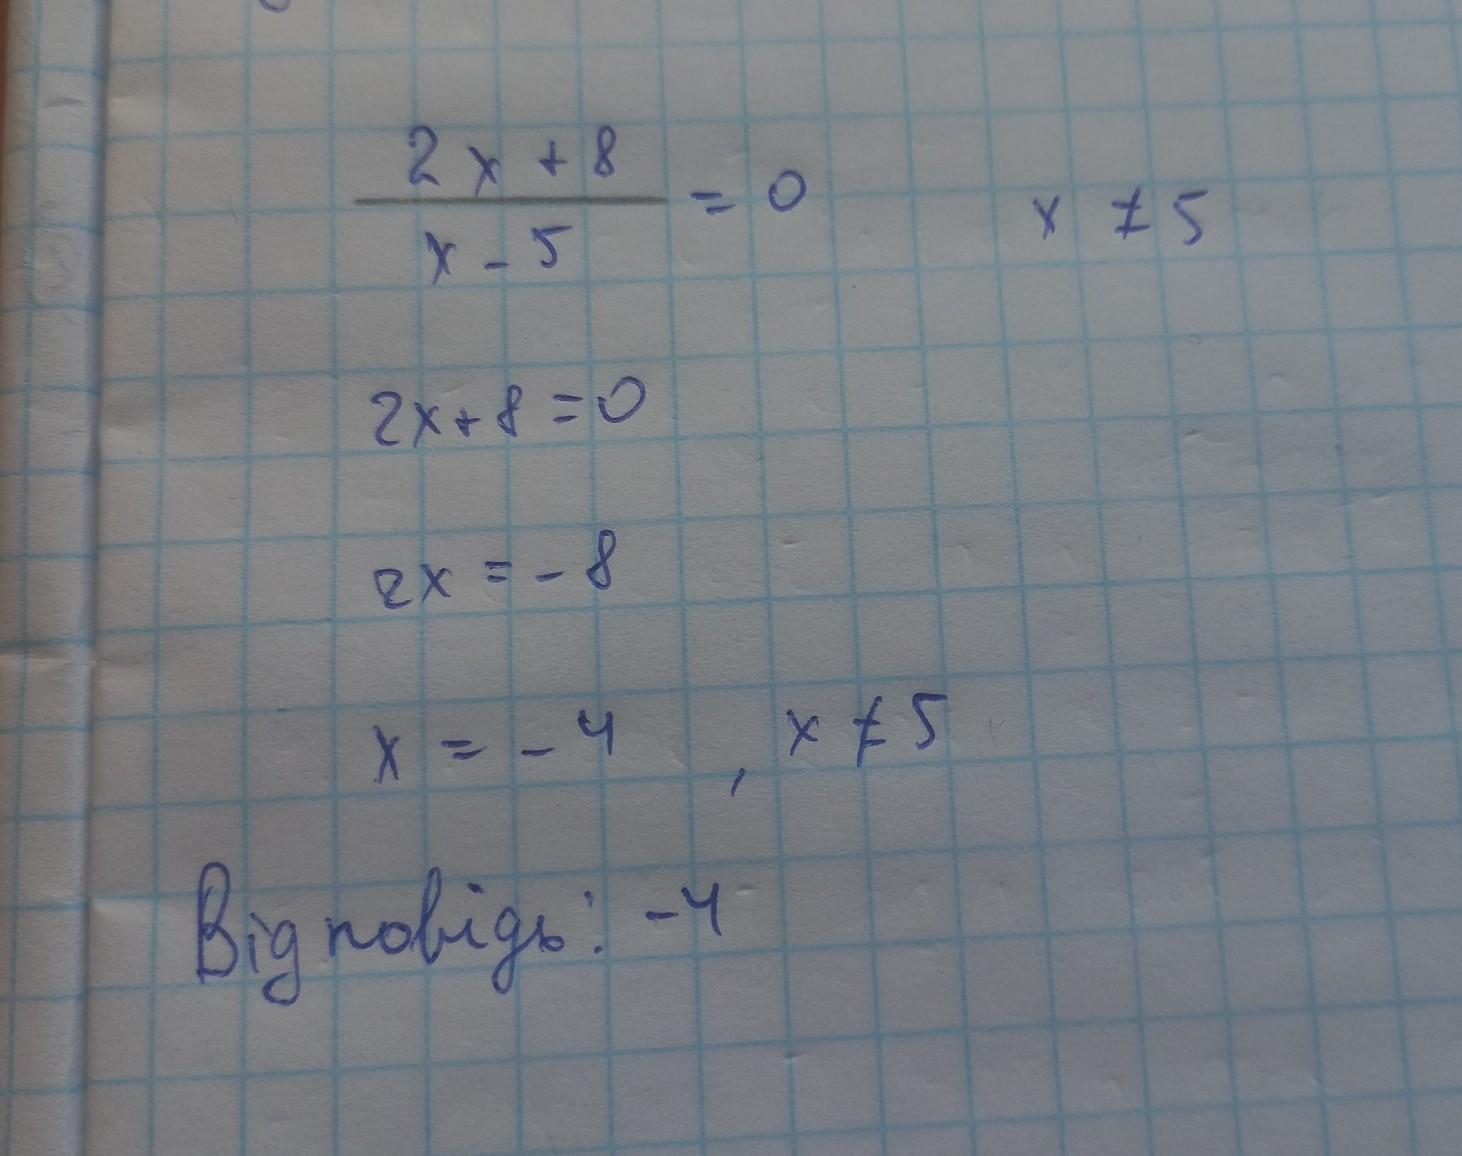 2x + 8 / x - 5 = 0   x ≠ 5
2x + 8 = 0
2x = - 8
x = - 4 , x ≠ 5
Відповідь: -4